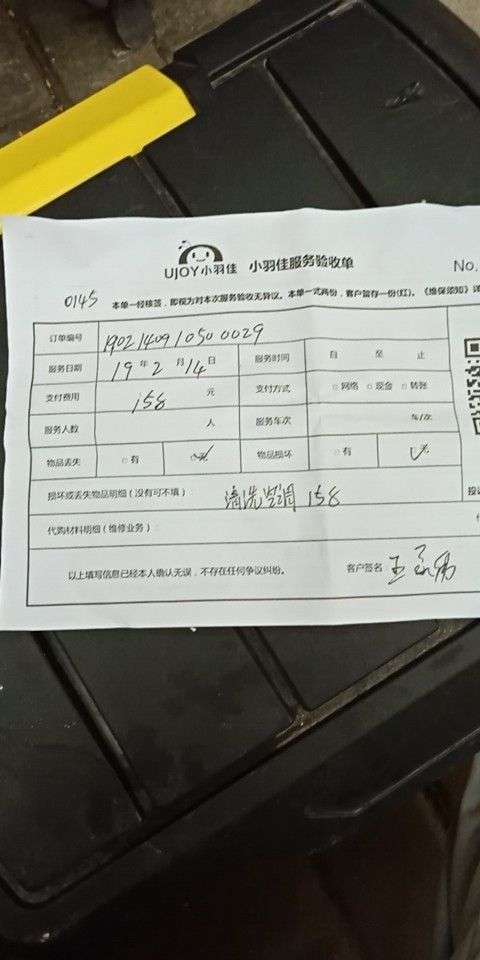 UJOY小羽佳 小羽佳服务验收单 No.
0145 本单一经核签，即视为对本次服务验收无异议。本单一式两份，客户留存一份(红)。《维保须知》详
订单编号 190214091050 0029
服务日期 19年2月14日 服务时间 自 至 止
支付费用 158 元 支付方式 □网络 □现金 □转账
服务人数 人 服务车次 车/次
物品丢失 □有 物品损坏 □有
损坏或丢失物品明细（没有可不填） 清洗空调 158
代购材料明细（维修业务）：
以上填写信息已经本人确认无误，不存在任何争议纠纷。 客户签名：王